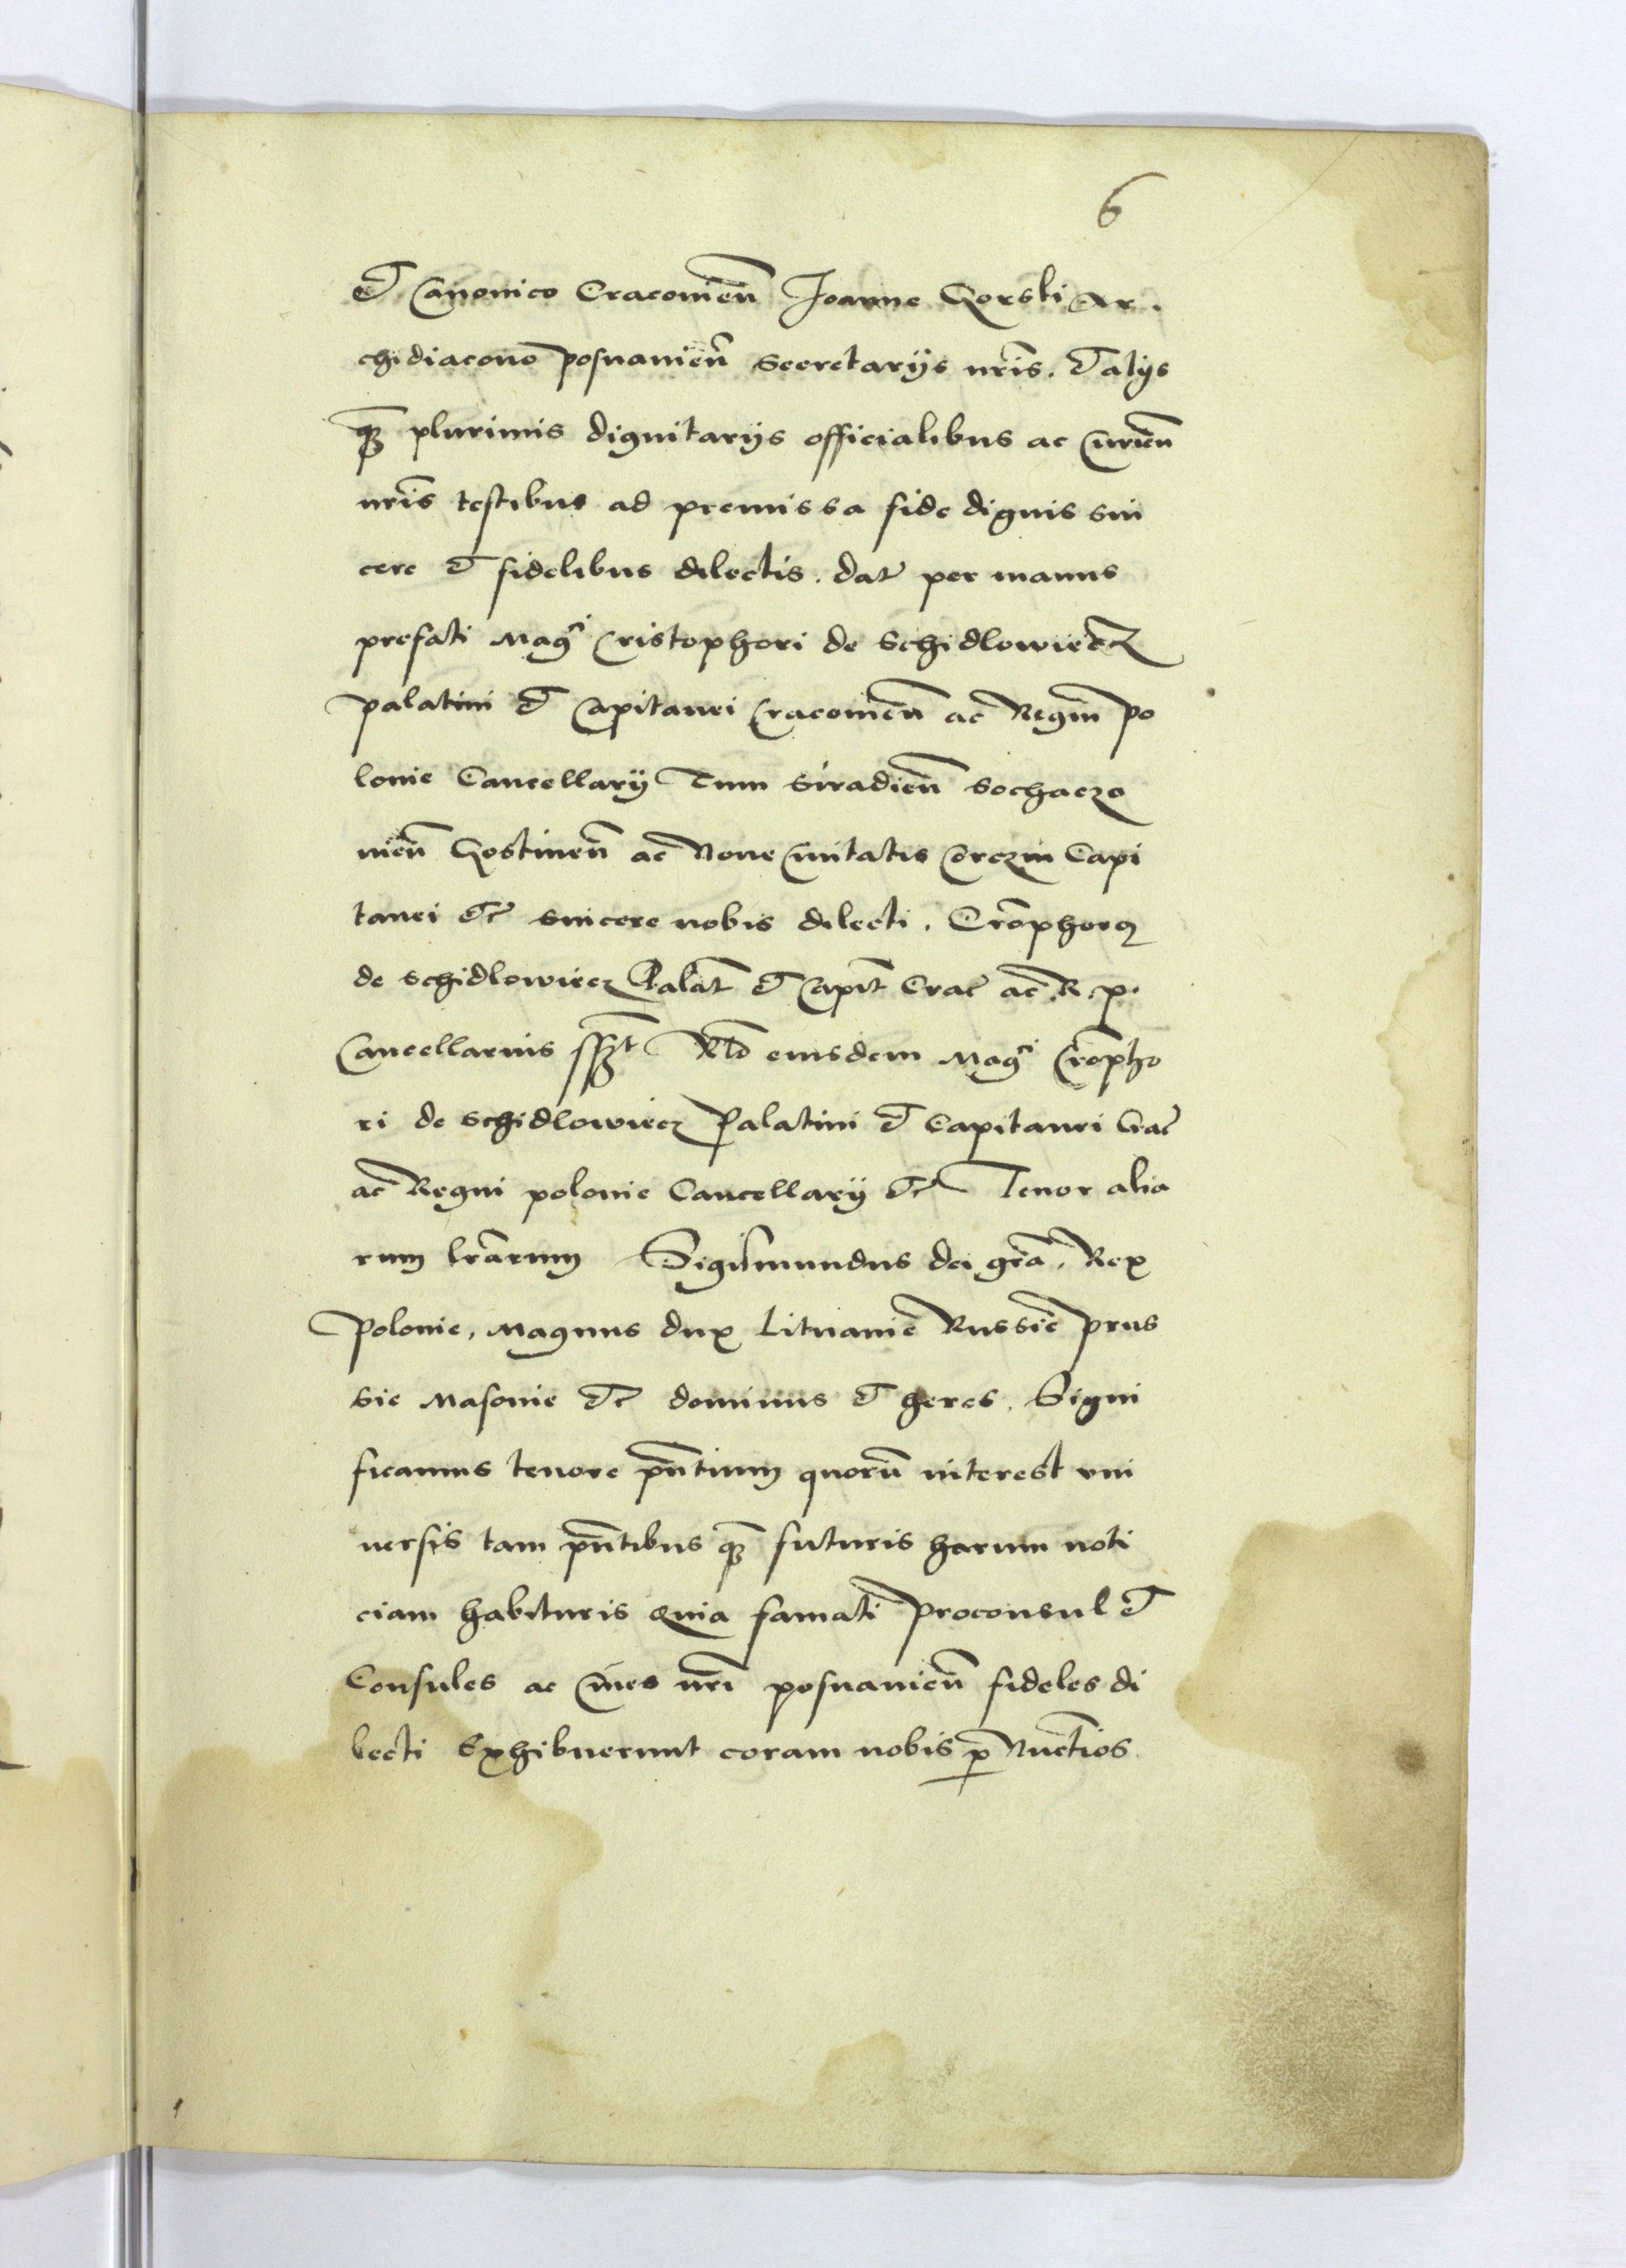 6
et Canonico Cracouien̄ Joanne Gorski Ar.
chidiacono posnanien̄ secretarijs nr̄is. et alijs
qꝫ plurimis dignitarijs officialibus ac Curien̄
nr̄is testibus ad premissa fide dignis sin
cere et fidelibus dilectis. dat̄ per manus
prefati Magci Cristophori de Schidlowiecz
palatini et Capitanei Cracouien̄ ac Regni po
lonie Cancellarij Tum Siradien̄ Sochaczo
uien̄ Gostinen̄ ac Noue Ciuitatis Corczin Capi
tanei etc̄ sincere nobis dilecti. Cr̄ophorꝯ
de Schidlowiecz Palat̄ et Capit̄ Crac̄ ac R. p.
Cancellarius sszt Rlō eiusdem Magci Cr̄opho
ri de Schidlowiecz Palatini et Capitanei Crac̄
ac Regni polonie Cancellarij etc̄ Tenor alia
rum lr̄arum Sigismundus dei gr̄a. Rex
Polonie, Magnus dux Lituanie Russie prus
sie Masouie etc̄ dominus et heres. Signi
ficamus tenore pn̄tium quorū interest vni
uersis tam pn̄tibus qꝫ futuris harum noti
ciam habituris Quia famati proconsul et
Consules ac Ciues nr̄i posnanien̄ fideles di
lecti Exhibuerunt coram nobis ꝑ Nuctios